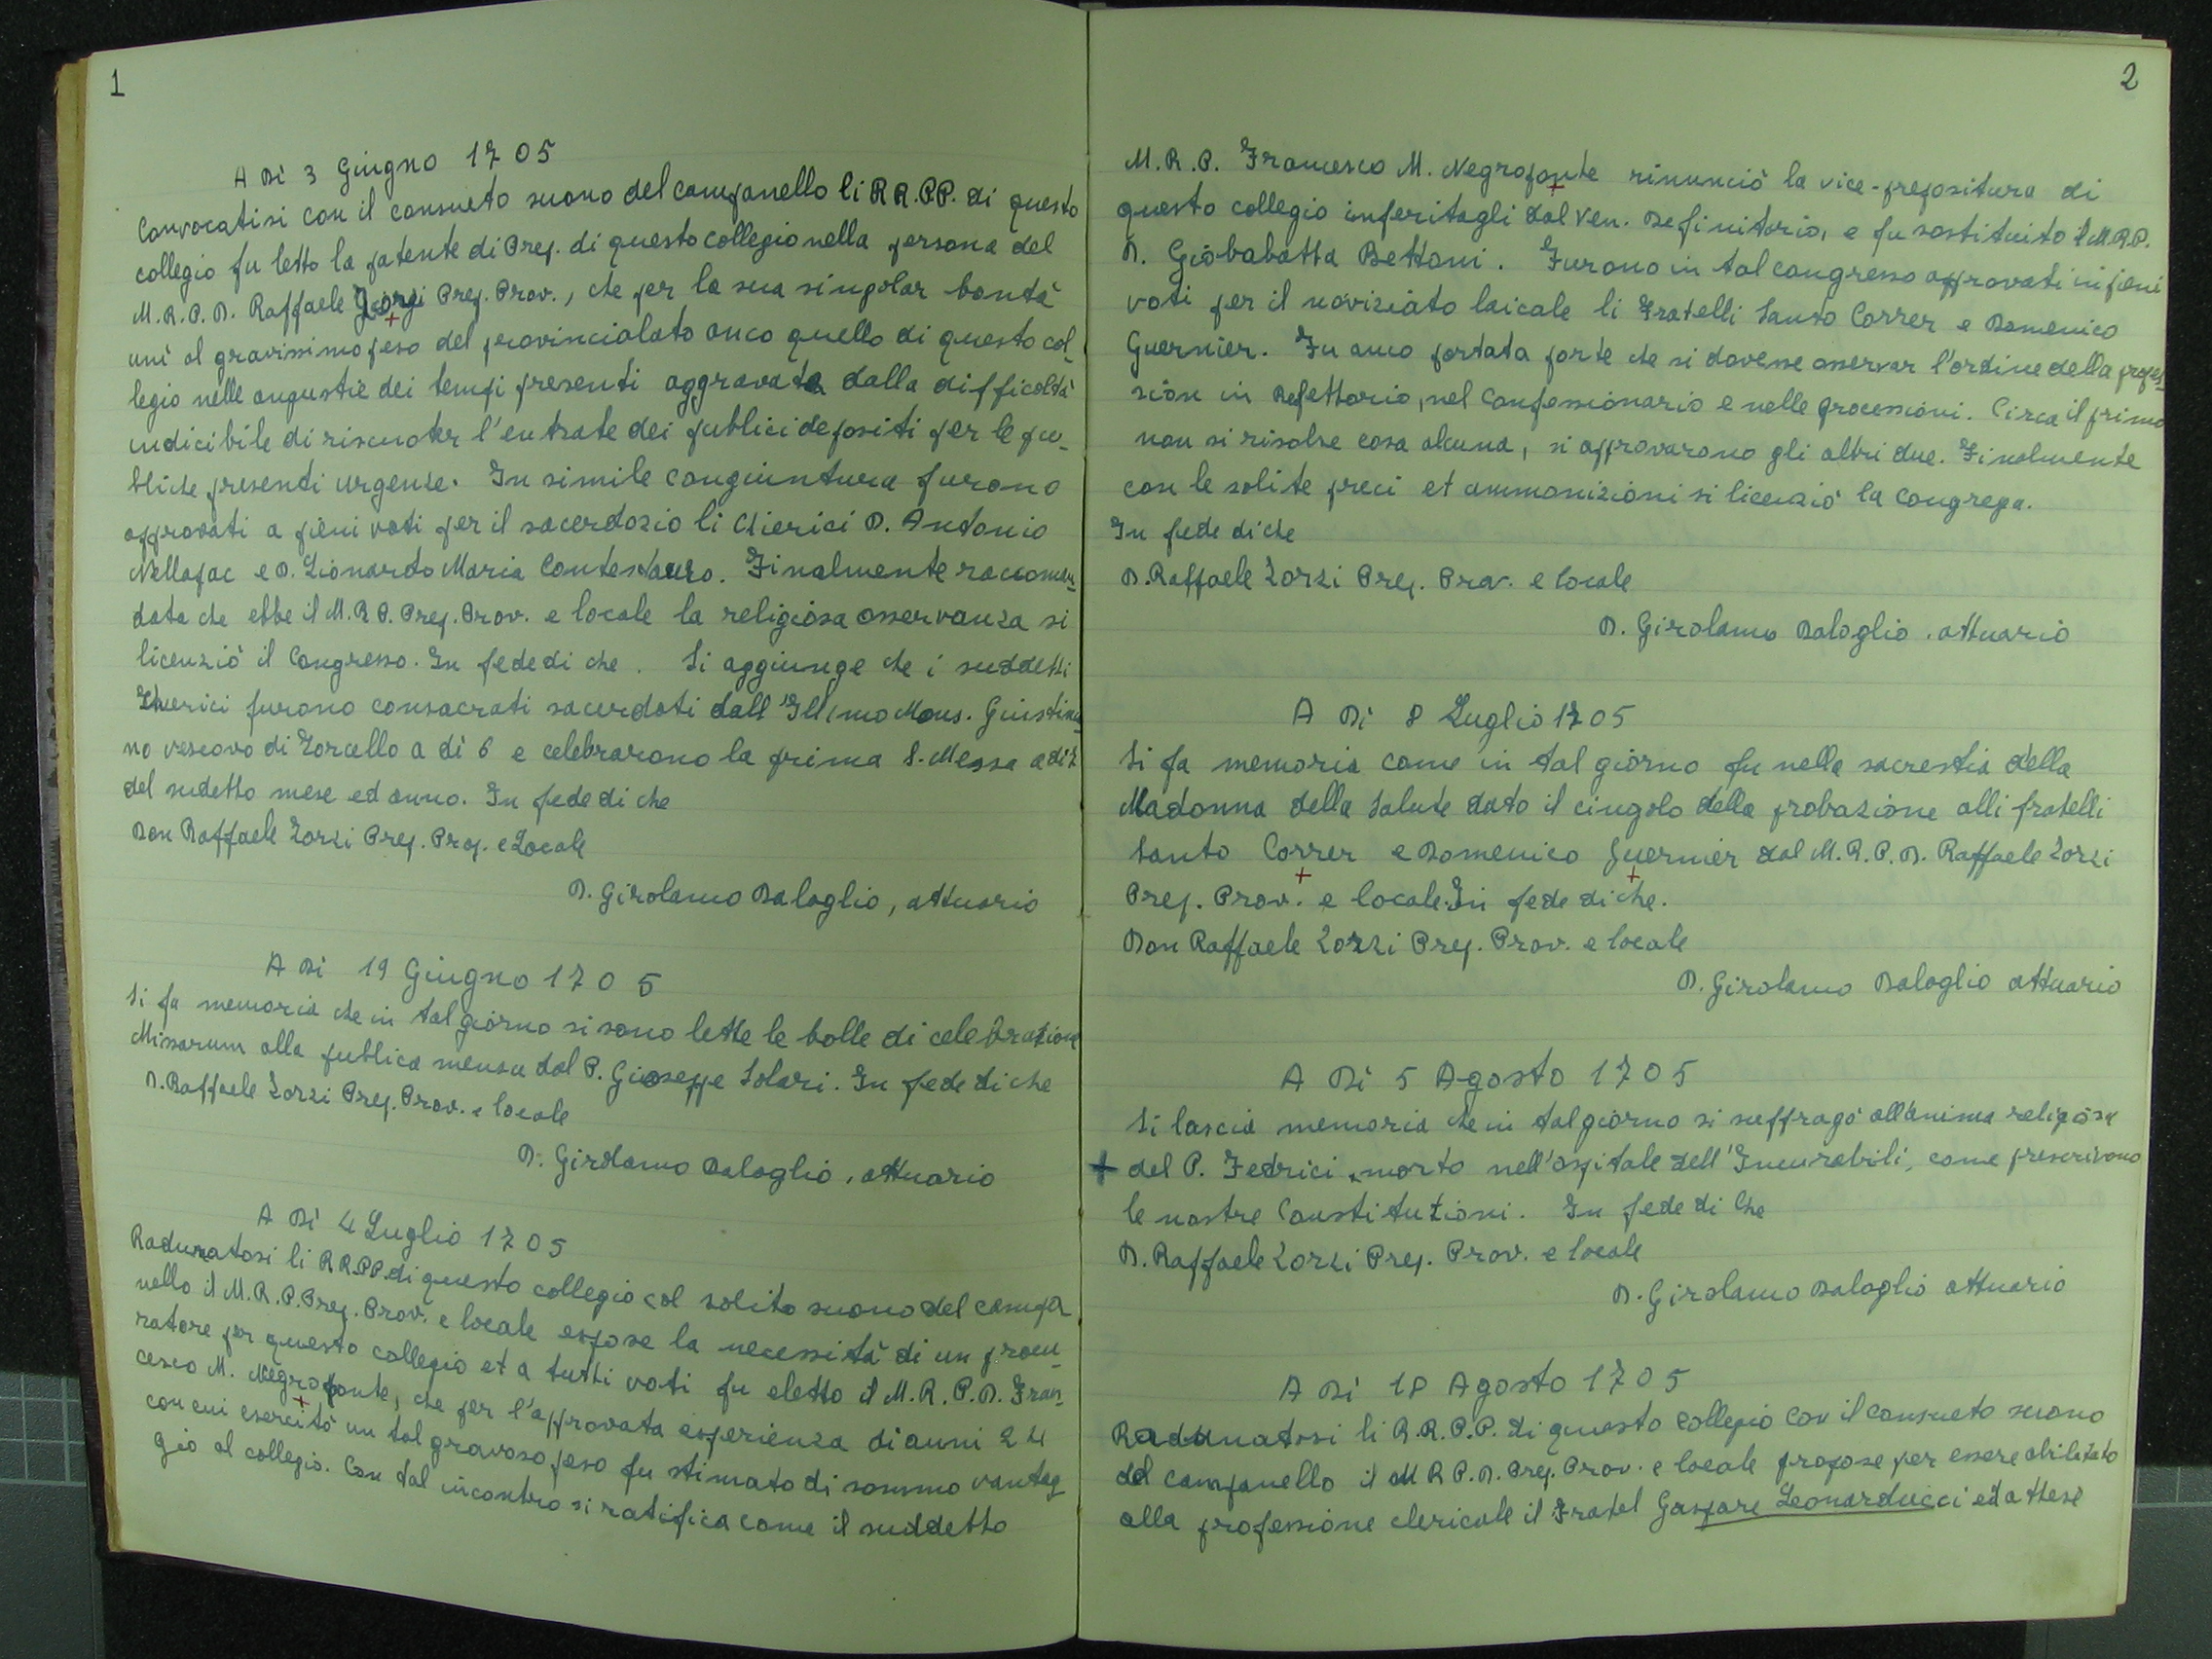 1
A Dì 3 Giugno 1705
Convocatisi con il consueto suono del campanello li RR.PP. di questo
collegio fu letto la patente di Prep. di questo collegio nella persona del
M.R.P.D. Raffaele Giorgi Prep. Prov., che per la sua singolar bontà
unì al gravissimo peso del provincialato anco quello di questo col-
legio nelle angustie dei tempi presenti aggravate dalla difficoltà
indicibile di riscuoter l'entrate dei publici depositi per le pu-
bliche presenti urgenze. In simile congiuntura furono
approvati a pieni voti per il sacerdozio li Chierici D. Antonio
e D. Lionardo Maria Contestauro. Finalmente raccoman-
data che ebbe il M.R.P. Prep. Prov. e locale la religiosa osservanza si
licenziò il Congresso. In fede di che. Si aggiunge che i suddetti
Chierici furono consacrati sacerdoti dall'Ill.mo Mons. Giustinia-
no vescovo di Torcello a dì 6 e celebrarono la prima S. Messa a dì 7
del sudetto mese ed anno. In fede di che
Don Raffaele Zorzi Prep. Prov. e Locale
D. Girolamo Daloglio, attuario
A Dì 19 Giugno 1705
Si fa memoria che in tal giorno si sono lette le bolle di celebratione
Missarum alla publica mensa dal P. Gioseppe Solari. In fede di che
D. Raffaele Zorzi Prep. Prov. e locale
D. Girolamo Daloglio, attuario
A Dì 4 Luglio 1705
Radunatosi li RR.PP. di questo collegio col solito suono del campa
nello il M.R.P. Prep. Prov. e locale espose la necessità di un procu-
ratore per questo collegio et a tutti voti fu eletto il M.R.P.D. Fran-
cesco M. Negroponte, che per l'approvata esperienza di anni 24
con cui esercitò un tal gravoso peso fu stimato di sommo vantag
gio al collegio. Con tal incontro si ratifica come il suddetto
2
M.R.P. Francesco M. Negroponte rinunciò la vice-prepositura di
questo collegio inferitagli dal Ven. Definitorio, e fu sostituito il M.R.P.
D. Giobabatta Bettoni. Furono in tal congresso approvati in pieni
voti per il noviziato laicale li Fratelli Santo Correr e Domenico
Guernier. Fu anco portata parte che si dovesse osservar l'ordine della profes-
sion in Refettorio, nel Confessionario e nelle processioni. Circa il primo
non si risolse cosa alcuna, si approvarono gli altri due. Finalmente
con le solite preci et ammonizioni si licenziò la Congrega.
In fede di che
D. Raffaele Zorzi Prep. Prov. e locale
D. Girolamo Daloglio, attuario
A Dì 8 Luglio 1705
Si fa memoria come in tal giorno fu nella sacrestia della
Madonna della Salute dato il cingolo della probazione alli fratelli
Santo Correr e Domenico Guernier dal M.R.P.D. Raffaele Zorzi
Prep. Prov. e locale. In fede di che.
Don Raffaele Zorzi Prep. Prov. e locale
D. Girolamo Daloglio attuario
A Dì 5 Agosto 1705
Si lascia memoria che in tal giorno si suffragò all'anima religiosa
+ del P. Fedrici, morto nell'ospitale dell'Incurabili, come prescrivono
le nostre Constitutioni. In fede di Che
D. Raffaele Zorzi Prep. Prov. e locale
D. Girolamo Daloglio attuario
A Dì 18 Agosto 1705
Radunatosi li R.R.P.P. di questo Collegio con il consueto suono
del campanello il M R P.D. Prep. Prov. e locale propose per essere abilitato
alla professione clericale il Fratel Gaspare Leonarducci ed attese